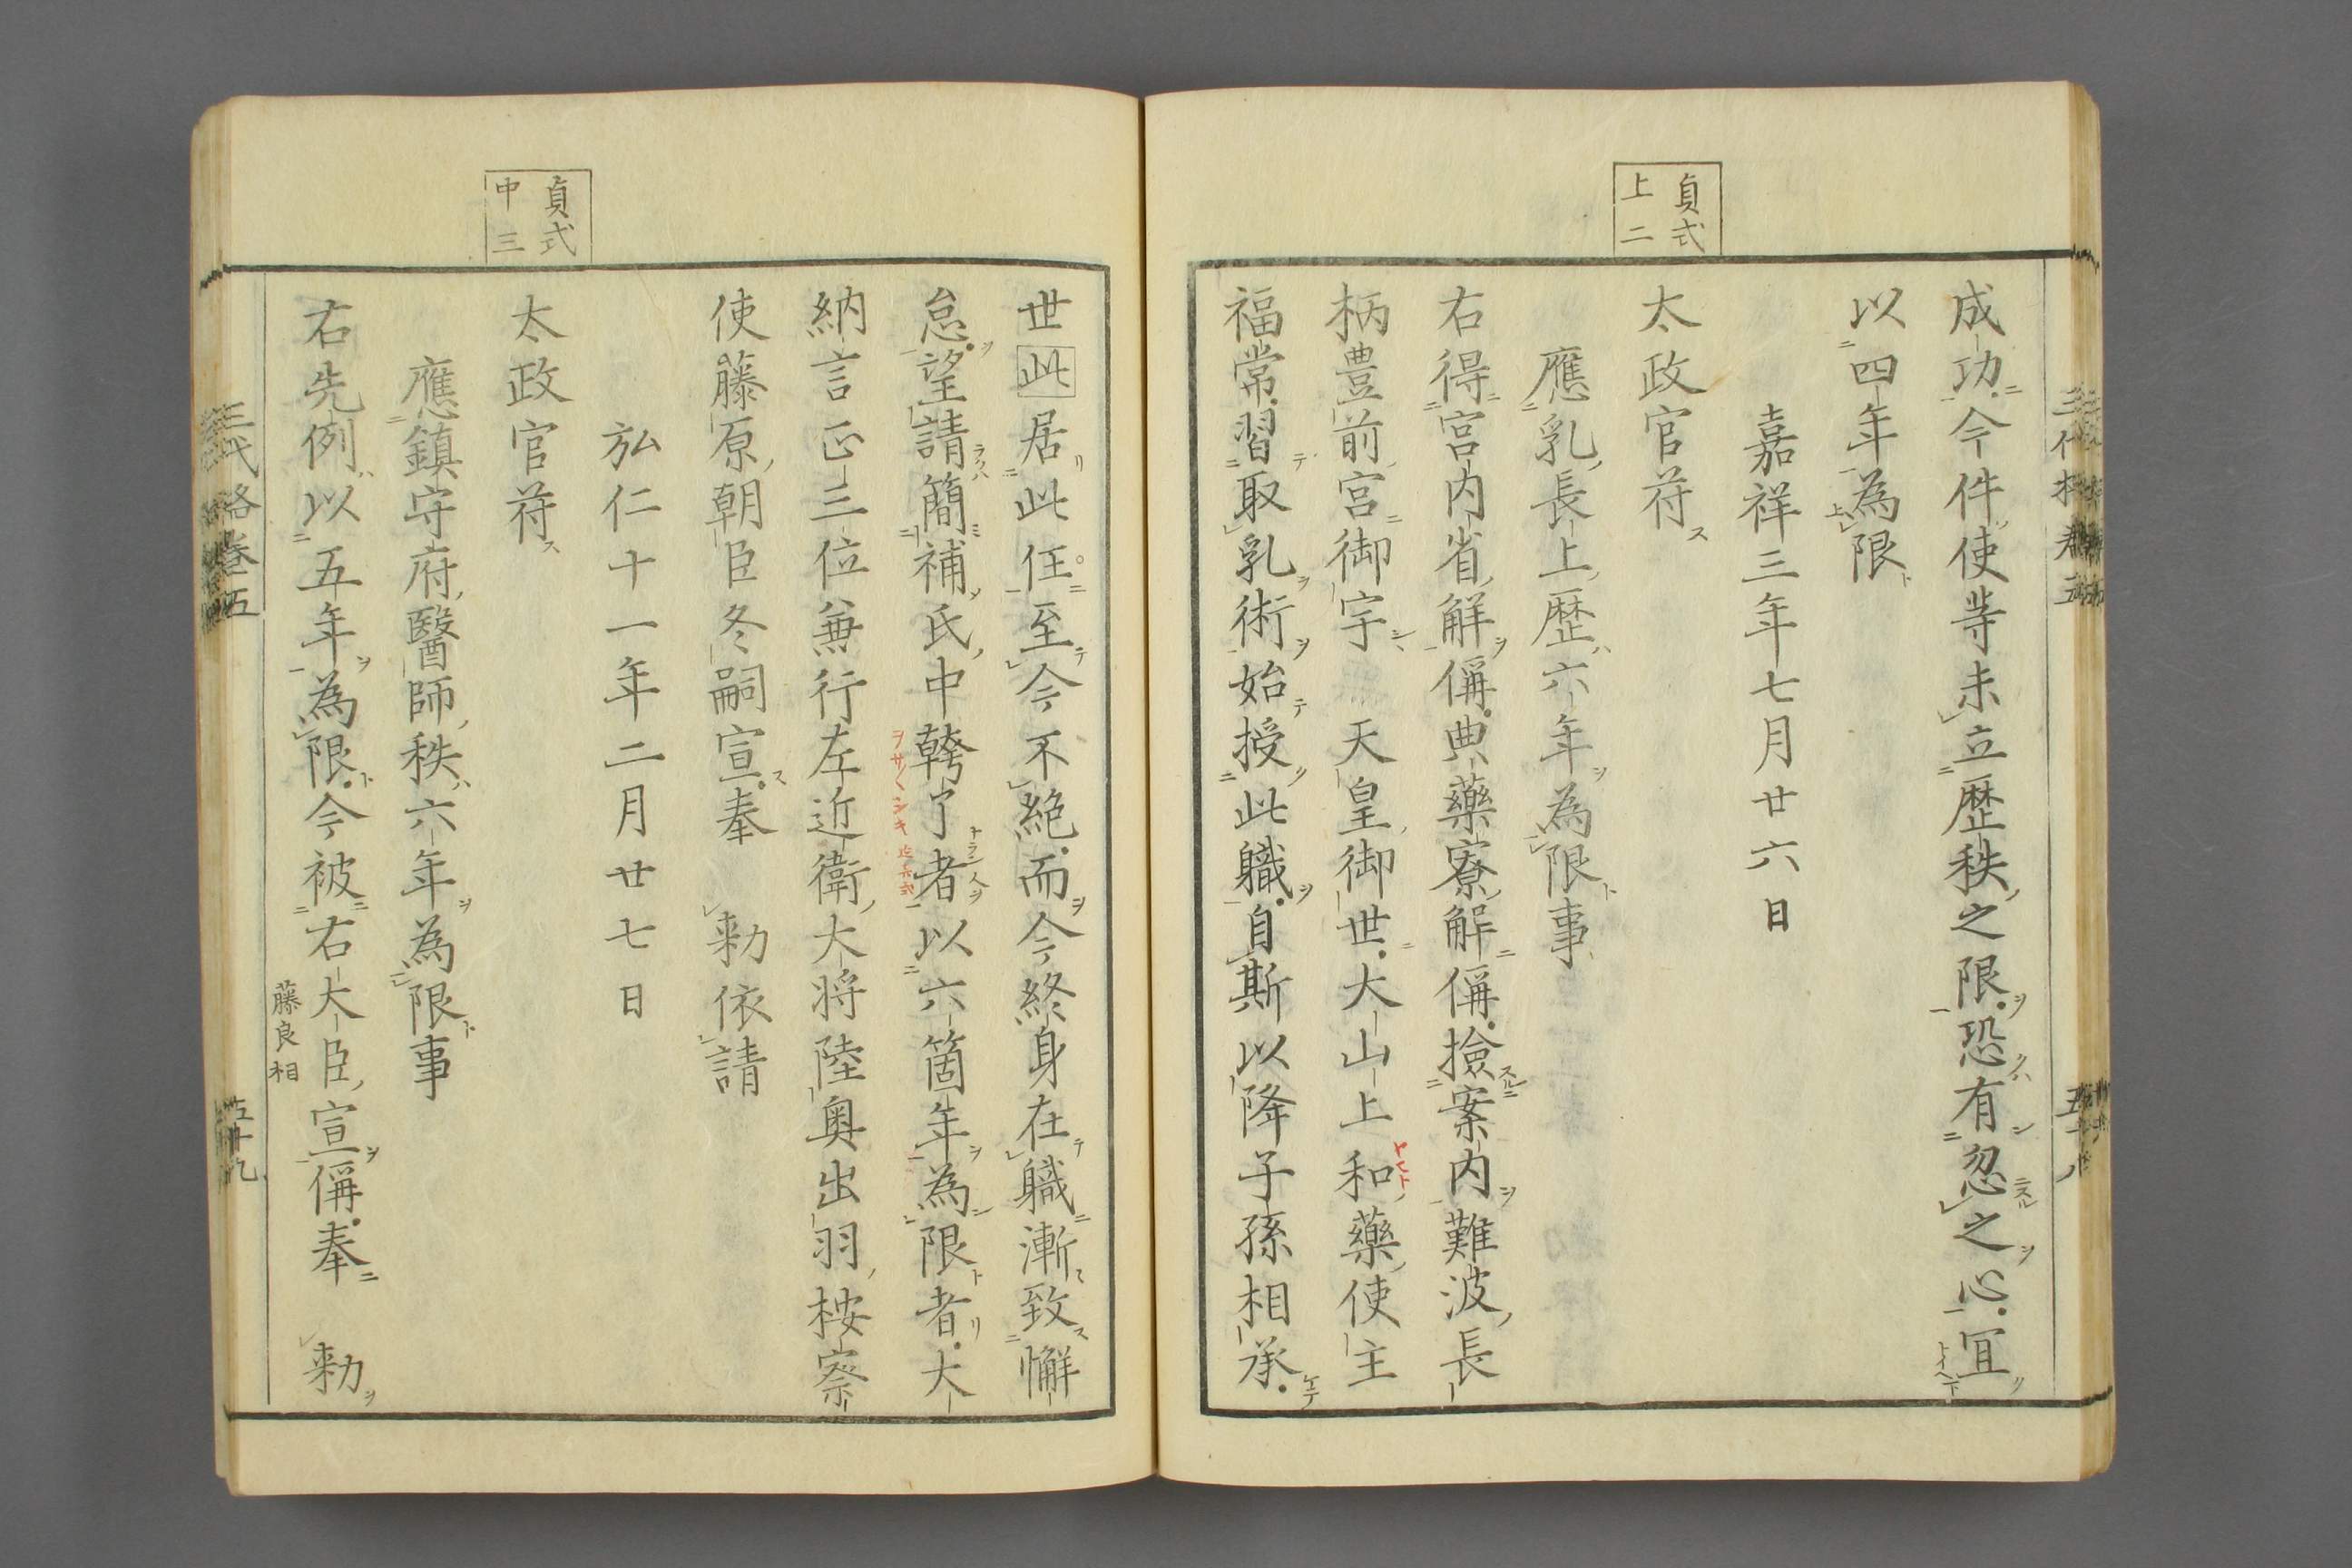 貞式
上二
成功今件使等未立歴秩之限恐有忽之心冝
以四年為限
嘉祥三年七月廿六日
太政官苻
應乳長上歴六年為限事
右得宮内省解偁典藥寮解偁撿案内難波長
柄豊前宮御宇 天皇御世大山上和藥使主
福常習取乳術始授此職自斯以降子孫相承
貞式
中三
世此居此任至今不絶而今終身在職漸致懈
怠望請簡補氏中幹了者以六箇年為限者大
納言正三位兼行左近衛大将陸奥出羽桉察
使藤原朝臣冬嗣宣奉 勅依請
弘仁十一年二月廿七日
太政官苻
應鎮守府醫師秩六年為限事
右先例以五年為限今被右大臣宣偁奉 勅
藤良相